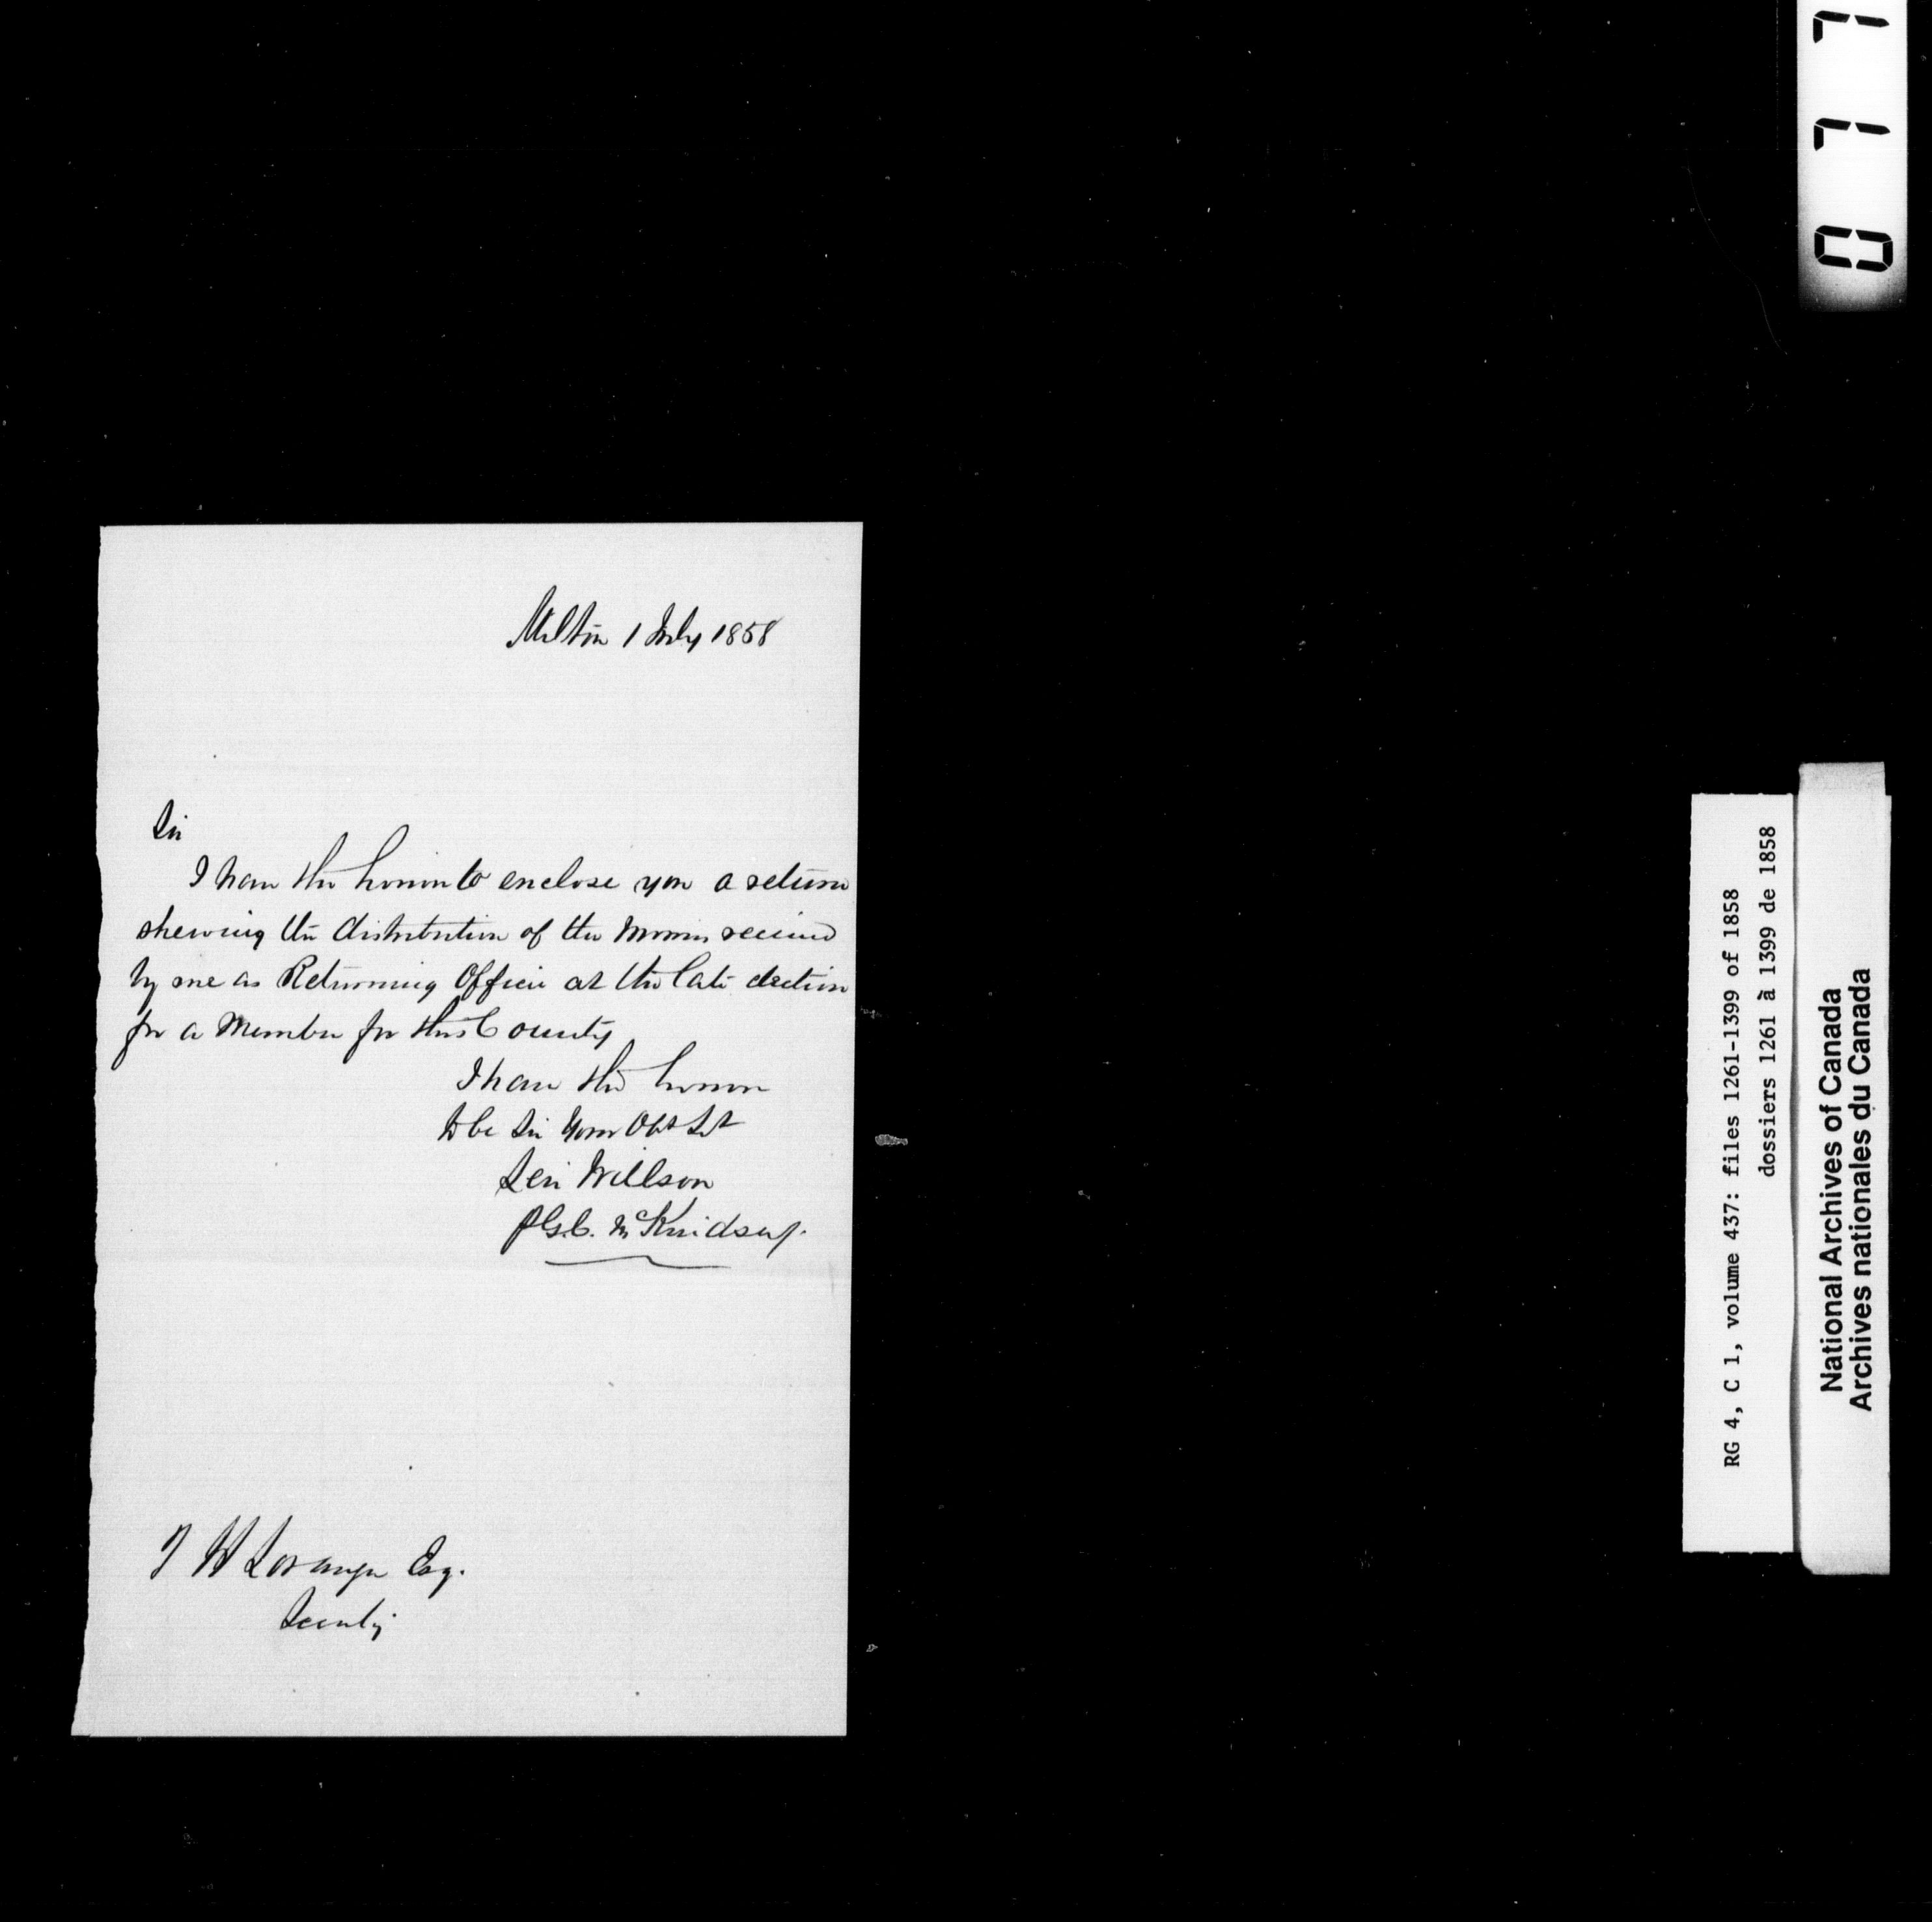 Milton 1 July 1858
Sir
I have the honor to enclose you a return
shewing the distribution of the Monies received
by me as Returning Officer at the late election
for a Member for this County
I have the honor
to be Sir Your Obt St
Levi Willson
T H Loranger Esq.
Secrety
0 7 7
RG 4, C 1, volume 437: files 1261-1399 of 1858
dossiers 1261 à 1399 de 1858
National Archives of Canada
Archives nationales du Canada